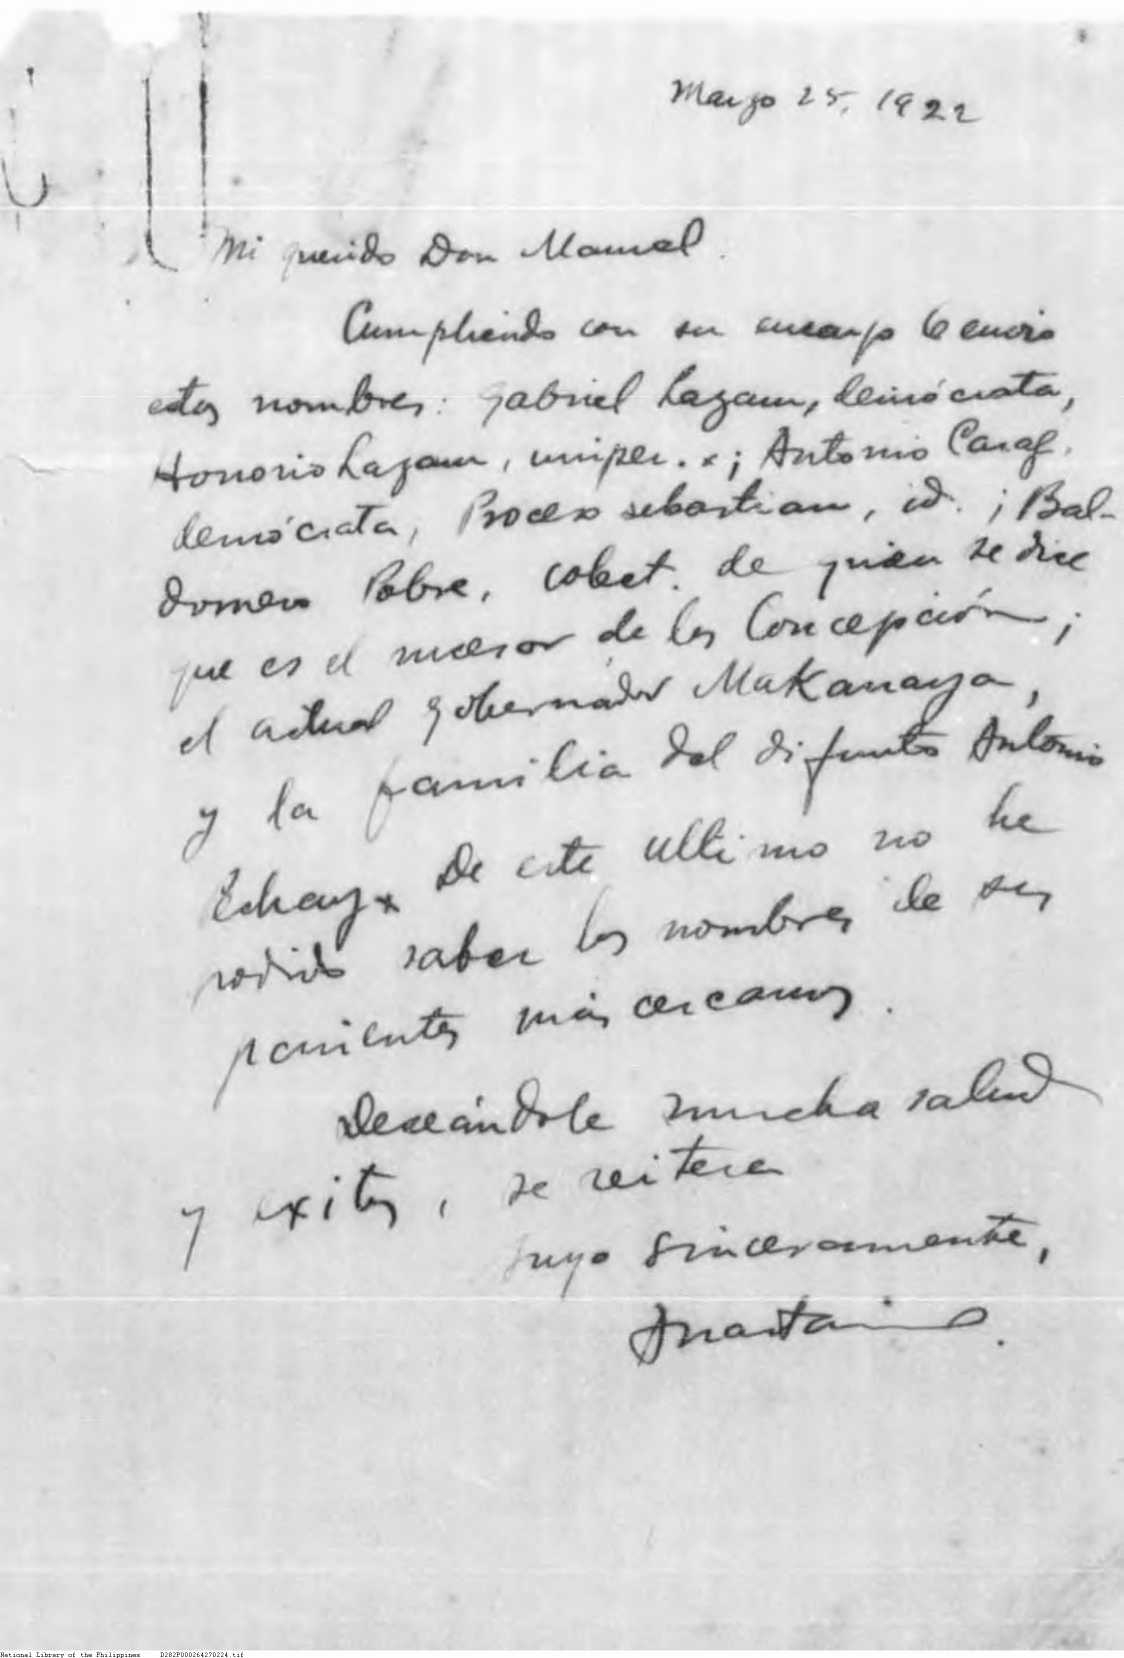 Marzo 25, 1922
Mi querido Don Manuel.
Cumpliendo con su encargo le envio
estos nombres: Gabriel Lazam, demócrata,
Honorio Lazam, uniper. x; Antonio Carag.
demócrata, Proceso Sebastian, id.; Bal-
domero Pobre, colect. de quien se dice
que es el sucesor de los Concepción;
el actual gobernador Makanaya,
y la familia del difunto Antonio
De este ultimo no he
podido saber los nombres de sus
parientes más cercanos.
Deseándole mucha salud
y exitos, se reitera
suyo sinceramente,
National Library of the Philippines D282P000264270224.tif